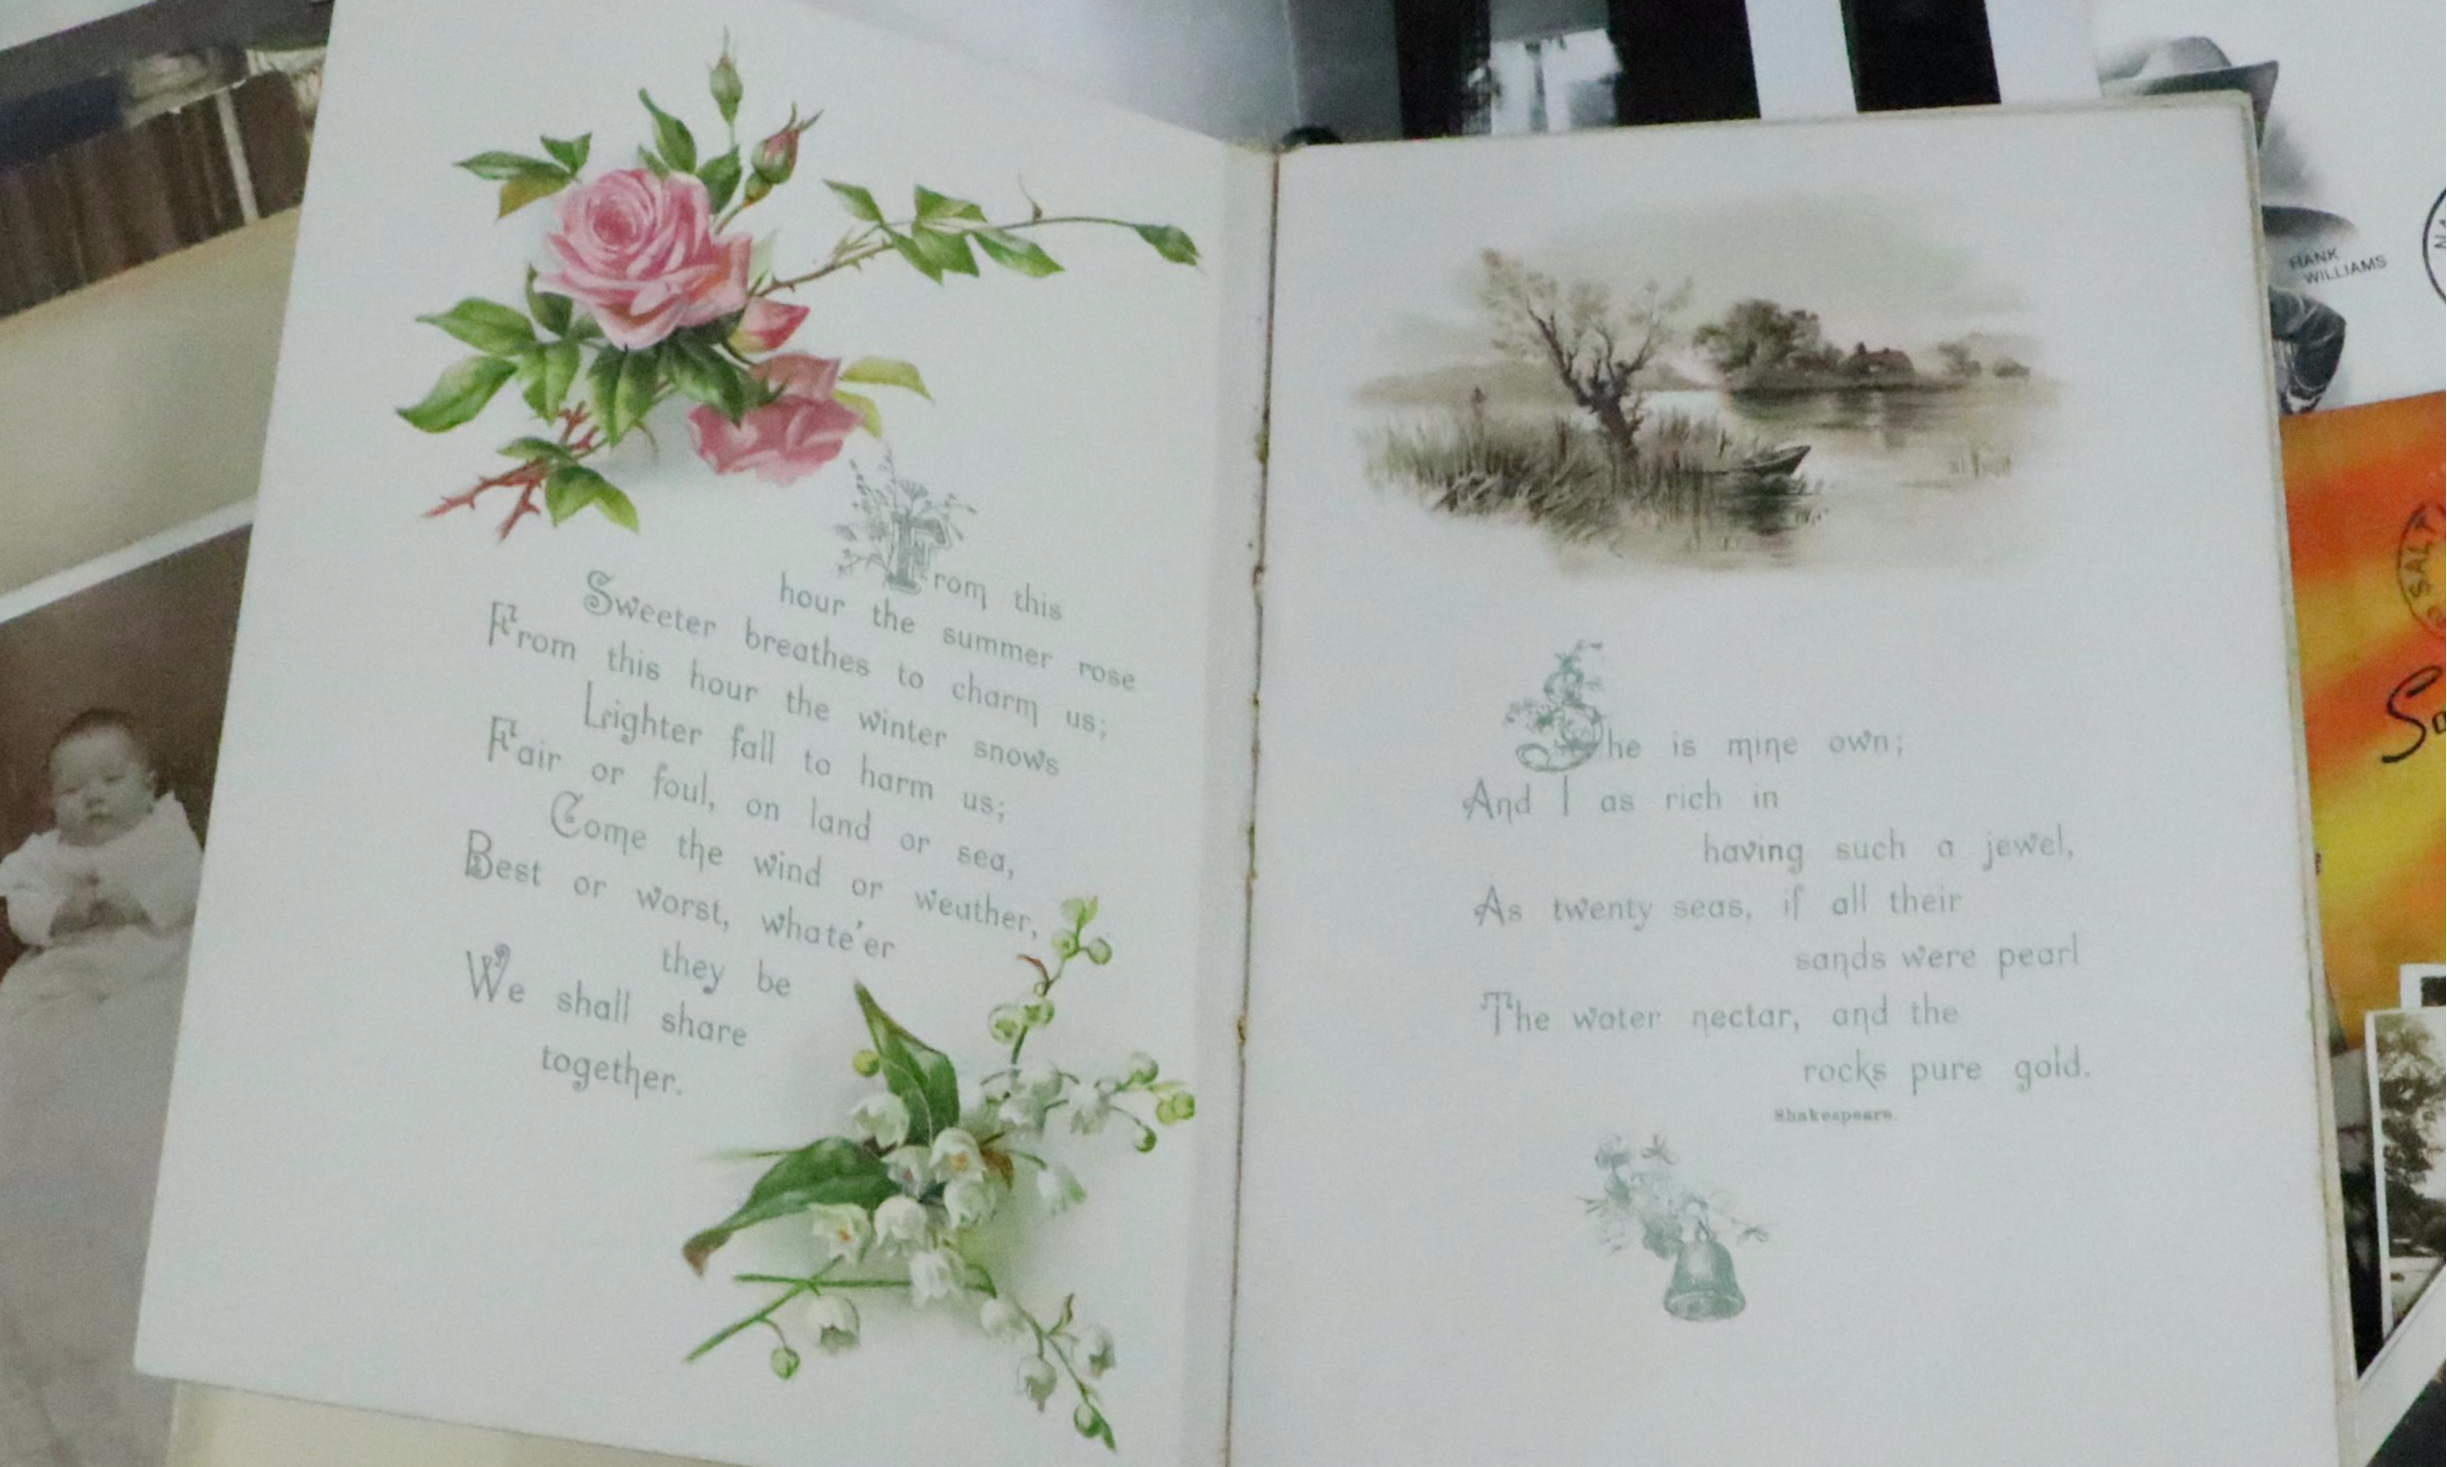 From this
hour the summer rose
Sweeter breathes to charm us;
From this hour the winter snows
Lighter fall to harm us;
Fair or foul, on land or sea,
Come the wind or weather,
Best or worst, whate'er
they be
We shall share
together.
She is mine own;
And I as rich in
having such a jewel,
As twenty seas, if all their
sands were pearl
The water nectar, and the
rocks pure gold.
Shakespeare.
HANK
WILLIAMS
SALT